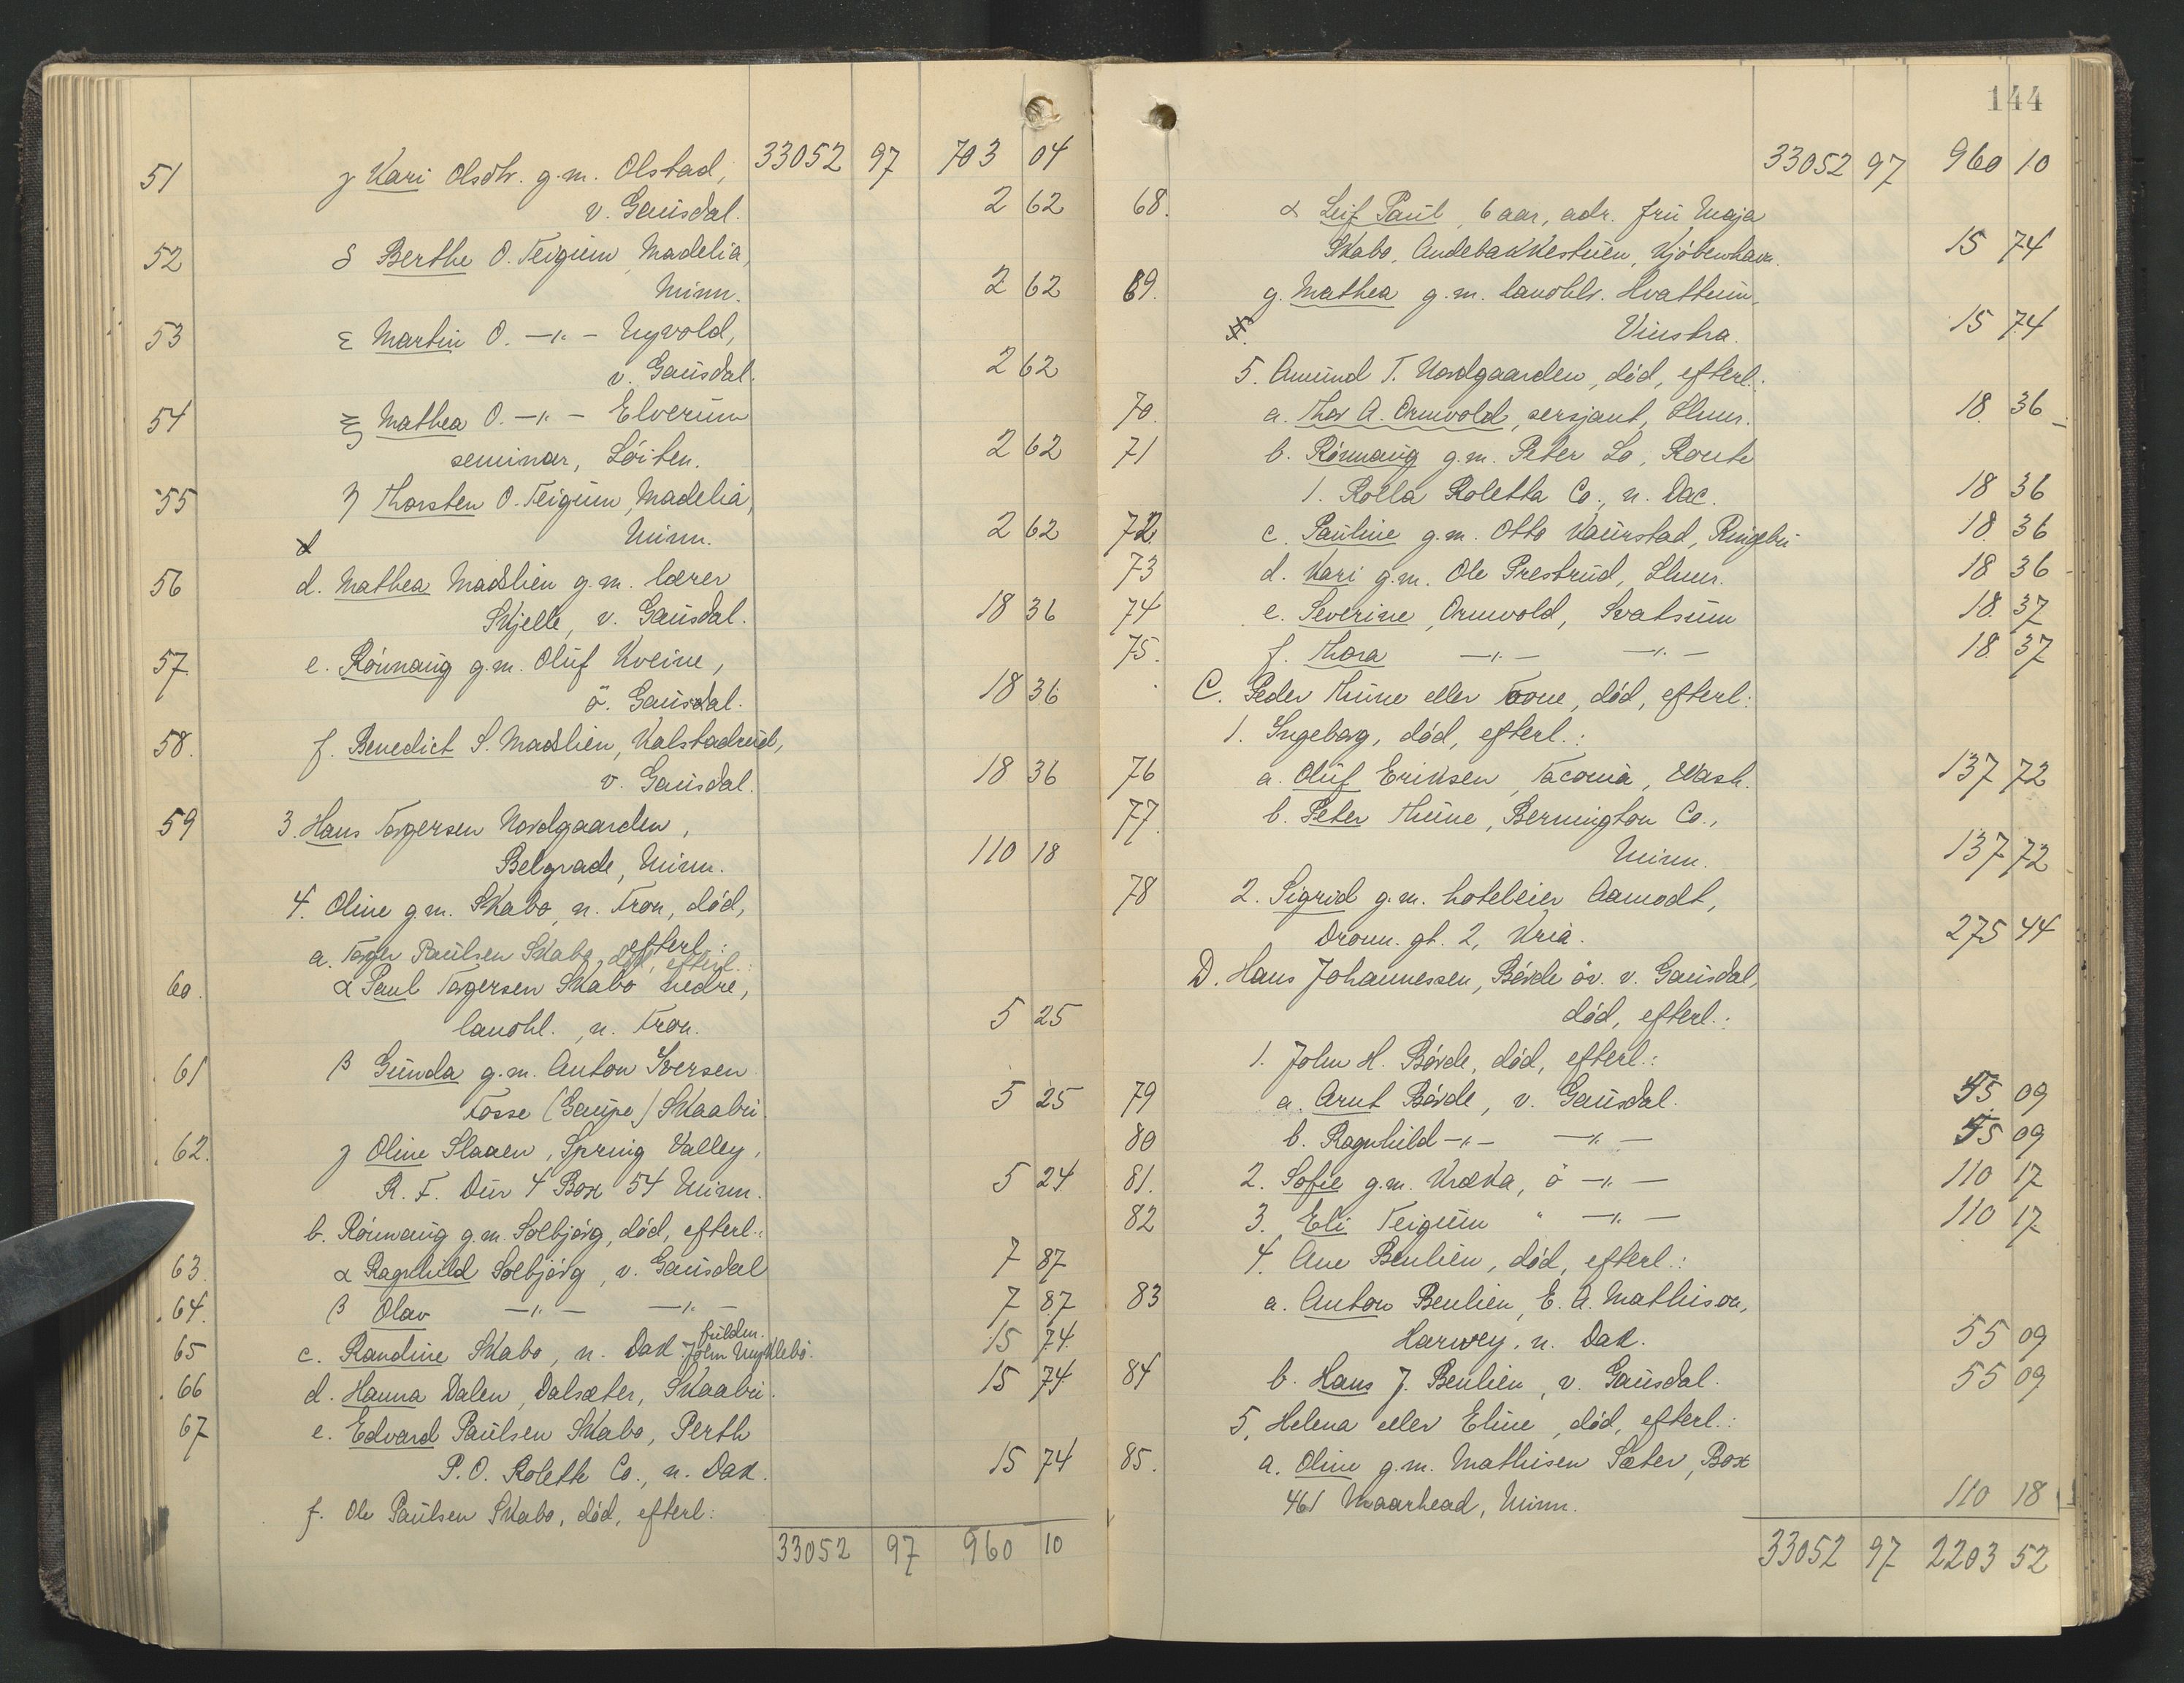 33052 97 703 04
51 γ Kari Olsdtr. g.m. Olstad,
v. Gausdal. 2 62
52 δ Berthe O. Teigum, Madelia,
Minn. 2 62
53 ε Martin O. -"- Nyvold,
v. Gausdal. 2 62
54 ξ Mathea O. -"- Elverum
seminar, Löiten. 2 62
55 η Thorsten O. Teigum, Madelia,
Minn. 2 62
56 d. Mathea Madslien g.m. lærer
Skjelle, v. Gausdal. 18 36
57 e. Rönnaug g.m. Oluf Kveine,
ö. Gausdal. 18 36
58. f. Benedict S. Madslien, Kalstadrud,
v. Gausdal. 18 36
59 3. Hans Torgersen Nordgaarden,
Belgrade, Minn. 110 18
4. Oline g.m. Skabo, n. Fron, död,
efterl.:
a. Torger Paulsen Skabo, död, efterl.:
60. α Paul Torgersen Skabo nedre,
landhl., n. Fron. 5 25
61 β Gunda g.m. Anton Iversen
Fosse (Gaupe) Skaabu 5 25
62. γ Oline Slaaen, Spring Valley,
R. F. Dur 4 Box 54 Minn. 5 24
b. Rönnaug g.m. Solbjörg, död, efterl.:
63. α Ragnhild Solbjörg, v. Gausdal 7 87
64. β Olav -"- -"- 7 87
fuldm.
65 c. Randine Skabo, n. Dak. John Nyklebö. 15 74
66 d. Hanna Dalen, Dalsæter, Skaabu. 15 74
67 e. Edvard Paulsen Skabo, Perth
P.O. Roleth Co., n. Dak. 15 74
f. Ole Paulsen Skabo, död, efterl:
33052 97 960 10
144
33052 97 960 10
68. α Leif Paul, 6 aar, adr. fru Maja
Skabo, Andebakkestien, Kjöbenhavn. 15 74
69. g. Mathea g.m. landhlr. Hvattum,
Vinstra. 15 74
5. Amund T. Nordgaarden, död, efterl.:
70. a. Thor A. Ormvold, sersjant, Lhmr. 18 36
71 b. Rönnaug g.m. Peter Lo, Route
1. Rolla Roletta Co., n. Dac. 18 36
72 c. Pauline g.m. Otto Kaurstad, Ringebu 18 36
73 d. Kari g.m. Ole Prestrud, Lhmr. 18 36
74 e. Severine Ormvold, Svatsum 18. 37
75. f. Thora -"- -"- 18. 37
C. Peder Thune eller Tone, död, efterl:
1. Ingeborg, död, efterl.:
76 a. Oluf Eriksen, Tacoma, Wash. 137 72
77. b. Peter Thune, Bernington Co.,
Minn. 137 72
78 2. Sigrid g.m. hoteleier Aamodt,
Dronn. gt. 2, Kria. 275 44
D. Hans Johannessen, Bövde öv. v. Gausdal,
död, efterl.:
1. John H. Bövde, död, efterl.:
79 a. Arnt Bövde, v. Gausdal. 55 09
80 b. Ragnhild -"- -"- 55 09
81. 2. Sofie g.m. Kræka, ö -"- 110 17
82 3. Eli Teigum " -"- 110 17
4. Ane Benlien, död, efterl.:
83 a. Anton Benlien, E. A. Mathison,
Harwey, n. Dak. 55 09
84 b. Hans J. Benlien, v. Gausdal. 55 09
5. Helena eller Eline, död, efterl.:
85. a. Oline g.m. Mathisen Sæter, Box
461 Maarhead, Minn. 110 18
33052 97 2203 52